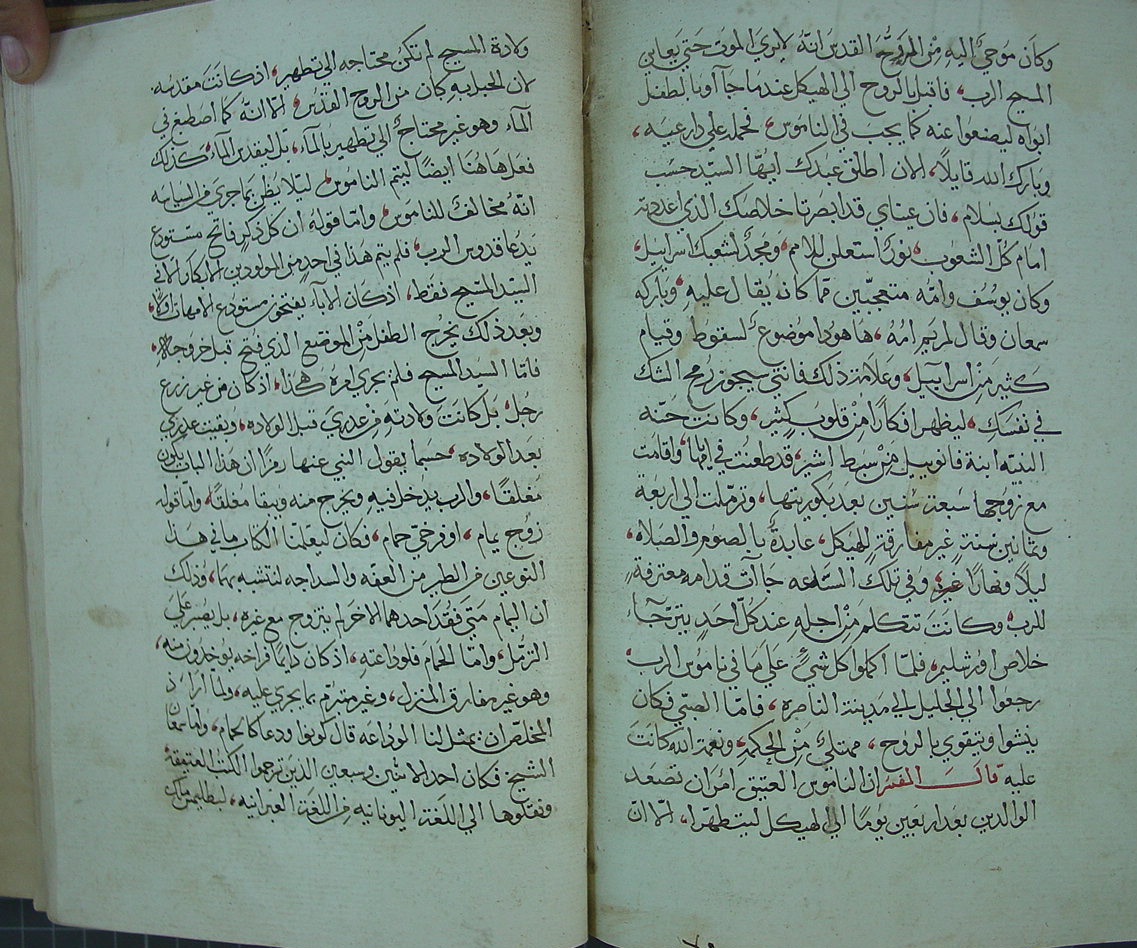 وكان موحيًا اليه من الروح القدس انه لا يري الموت حتي يعاين
المسيح الرب، فاقبل بالروح الي الهيكل عندما جآ اوبا لطفل
ابواه ليصنعوا عنه كما يجب في الناموس، فحمله علي دارعيه،
وبارك الله قايلاً، الان اطلق عبدك ايها السيد حسب
قولك بسلام، فان عيناي قد ابصرتا خلاصك الذي اعددته
امام كل الشعوب، نورًا استعلن للامم، ومجدًا لشعبك اسراييل،
وكان يوسف وامه متعجبين مما كانه يقال عليه، وباركه
سمعان وقال لمريم امه، ها هودا موضوع لسقوط وقيام
كثير من اسراييل، وعلامة ذلك فانتي سيجوز رمح الشك
في نفسك، ليظهر افكارًا من قلوب كثير، وكانت حنه
النبيه ابنة فانوييل من سبط اشير، قد طعنت في ايامها، واقامت
مع زوجها سبعة سنين بعد بكوريتها، وترملت الي اربعة
وثمانين سنة غير مفارقة للهيكل، عابدة بالصوم والصلاه،
ليلاً ونهارًا وفي تلك الساعه جآات قدامه معترفة
للرب، وكانت تتكلم من اجله عند كل احد يترجآ
خلاص اورشليم، فلما اكملوا كل شي علي ما في ناموس الرب
رجعوا الي الجليل الي مدينة الناصره، فامّا الصبي فكان
ينشوا ويتقوي بالروح، ممتلئ من الحكمه، ونعمة الله كانت
عليه، قال المفسر ان الناموس العتيق امر ان تصعد
الوالدين بعد اربعين يومًا الي الهيكل ليتطهرا، الا ان
ولادة المسيح لم تكن محتاجه الي تطهير، اذ كانت مقدسه،
لان الحبل به كان من الروح القدس، الا انه كما اصطبغ في
المآء وهو غير محتاج الي تطهير بالمآء، بل ليقدس المآء، كذلك
فعل هاهنا ايضًا ليتم الناموس، ليلا يظن بما جري في السياسه
انه مخالف للناموس، وامّا قوله ان كل ذكر فاتح مستودع
يدعا قدوس الرب، فلم يتم هذا في احد من المولودين الابكار الا في
السيد المسيح فقط، اذ كان الابآء يفتحون مستودع الامهات اولاً،
وبعد ذلك يخرج الطفل من الموضع الذي فتح قبل خروجه،
فامّا السيد المسيح فلم يجري امره هكذا، اذ كان من غير زرع
رجل، بل كانت ولادته من عدري قبل الولاده، وبقيت عدري
بعد الولاده، حسبما يقول النبي عنها رمزًا ان هذا الباب يكون
مغلقًا، والرب يدخل فيه ويخرج منه ويبقا مغلقًا، وامّا قوله
زوج يمام، او فرخي حمام، فكان ليعلمنا الكتاب ما في هذا
النوعين من الطير من العفه والسداجه لنتشبه بهما، وذلك
ان اليمام متي فقد احدهما الاخر لم يتزوج مع غيره، بل يصبر علي
الترمل، وامّا الحمام فلوداعته، اذ كان دايمًا فراخه يوخدون منه،
وهو غير مفارق المنزل، وغير متبرم بما يجري عليه، ولما اراد
المخلص ان يمثل لنا الوداعه قال كونوا ودعا كالحمام، وامّا سمعان
الشيخ فكان احد الاثنين وسبعين الذين ترجموا الكتب العتيقة
ونقلوها الي اللغة اليونانيه من اللغة العبرانيه، لبطليموس ملك